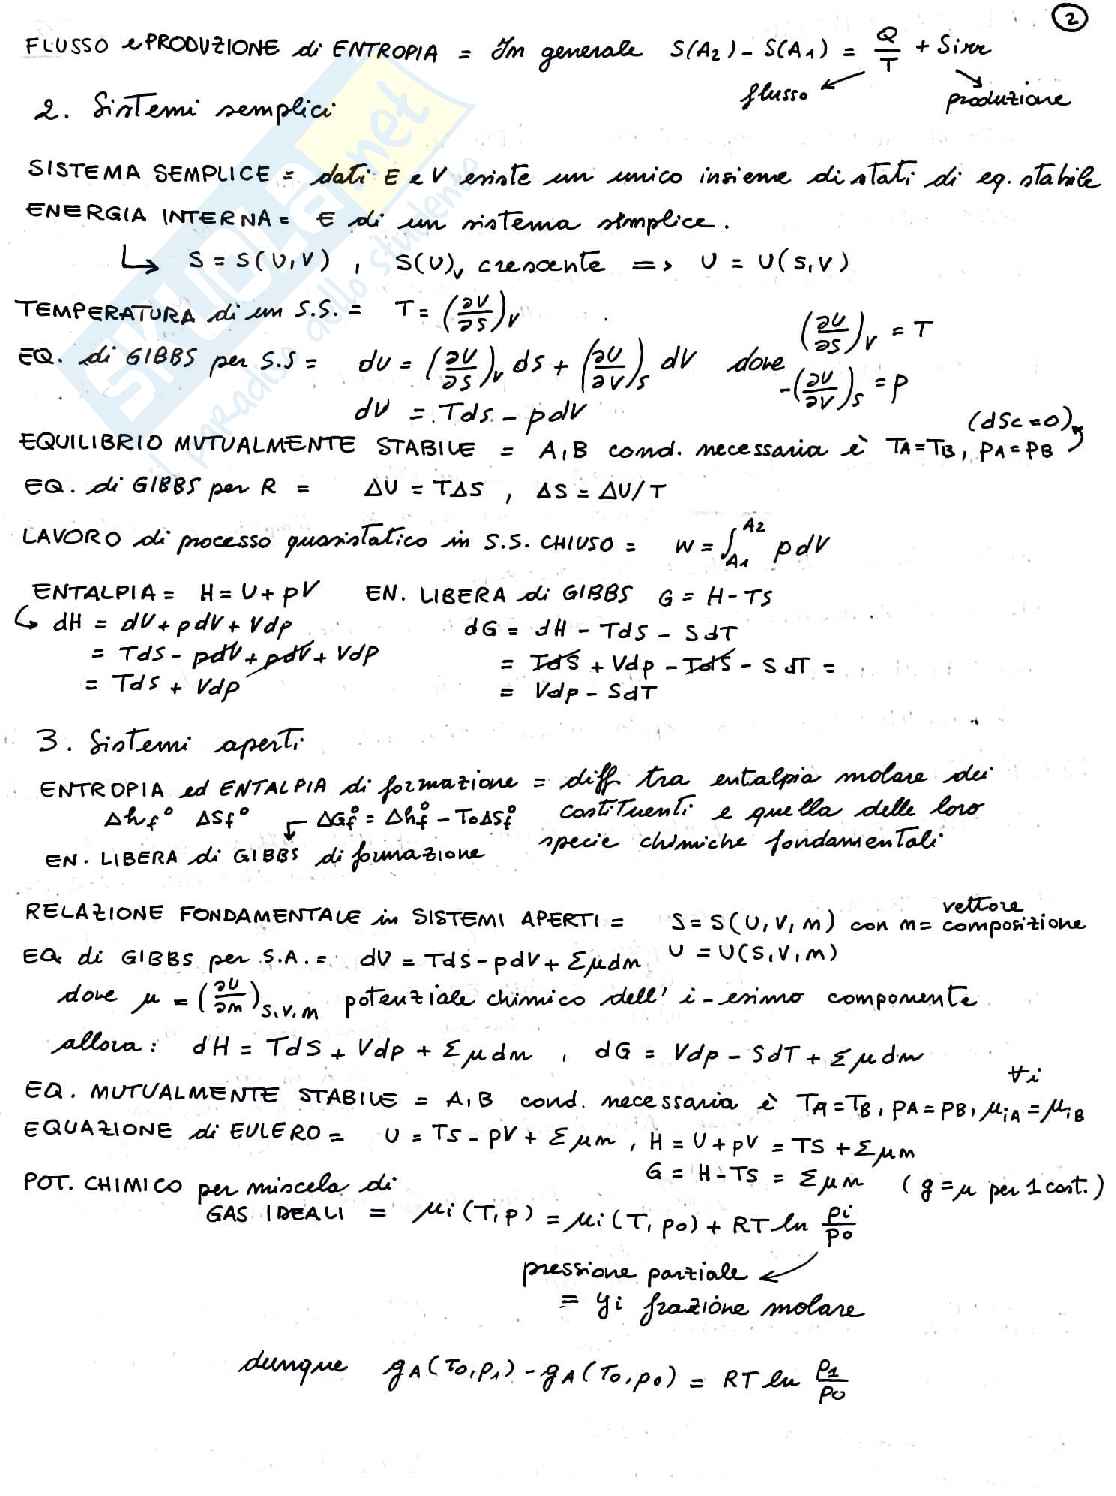 2
FLUSSO e PRODUZIONE di ENTROPIA = In generale S(A2) - S(A1) = Q/T + Sirr
flusso produzione
2. Sistemi semplici
SISTEMA SEMPLICE = dati E e V esiste un unico insieme di stati di eq. stabile
ENERGIA INTERNA = E di un sistema semplice.
↳ S = S(U,V) , S(U)v crescente => U = U(S,V)
TEMPERATURA di un S.S. = T = (∂U/∂S)v
EQ. di GIBBS per S.S = dU = (∂U/∂S)v dS + (∂U/∂V)s dV dove (∂U/∂S)v = T
-(∂U/∂V)s = p
dU = TdS - pdV
(dSc=0)
EQUILIBRIO MUTUALMENTE STABILE = A,B cond. necessaria è TA=TB, pA=pB
EQ. di GIBBS per R = ΔU = TΔS , ΔS = ΔU/T
LAVORO di processo quasistatico in S.S. CHIUSO = W = ∫A1^A2 pdV
ENTALPIA = H = U + pV EN. LIBERA di GIBBS G = H - TS
↳ dH = dU + pdV + Vdp dG = dH - TdS - SdT
= TdS - pdV + pdV + Vdp = TdS + Vdp - TdS - SdT =
= TdS + Vdp = Vdp - SdT
3. Sistemi aperti
ENTROPIA ed ENTALPIA di formazione = diff tra entalpia molare dei
Δhf° ΔSf° ΔGf° = Δhf° - T0ΔSf° costituenti e quella delle loro
EN. LIBERA di GIBBS di formazione specie chimiche fondamentali
RELAZIONE FONDAMENTALE in SISTEMI APERTI = S = S(U,V,m) con m = vettore composizione
EQ di GIBBS per S.A. = dU = TdS - pdV + Σμdm U = U(S,V,m)
dove μ = (∂U/∂m)S,V,m potenziale chimico dell' i-esimo componente
allora: dH = TdS + Vdp + Σμdm , dG = Vdp - SdT + Σμdm
EQ. MUTUALMENTE STABILE = A,B cond. necessaria è TA=TB, pA=pB, μiA=μiB ∀i
EQUAZIONE di EULERO = U = TS - pV + Σμm , H = U + pV = TS + Σμm
G = H - TS = Σμm (g=μ per 1 cost.)
POT. CHIMICO per miscela di
GAS IDEALI = μi(T,p) = μi(T,p0) + RT ln pi/p0
pressione parziale
= yi frazione molare
dunque gA(T0,p1) - gA(T0,p0) = RT ln p1/p0
SKUOLa.net
il paradiso dello studente